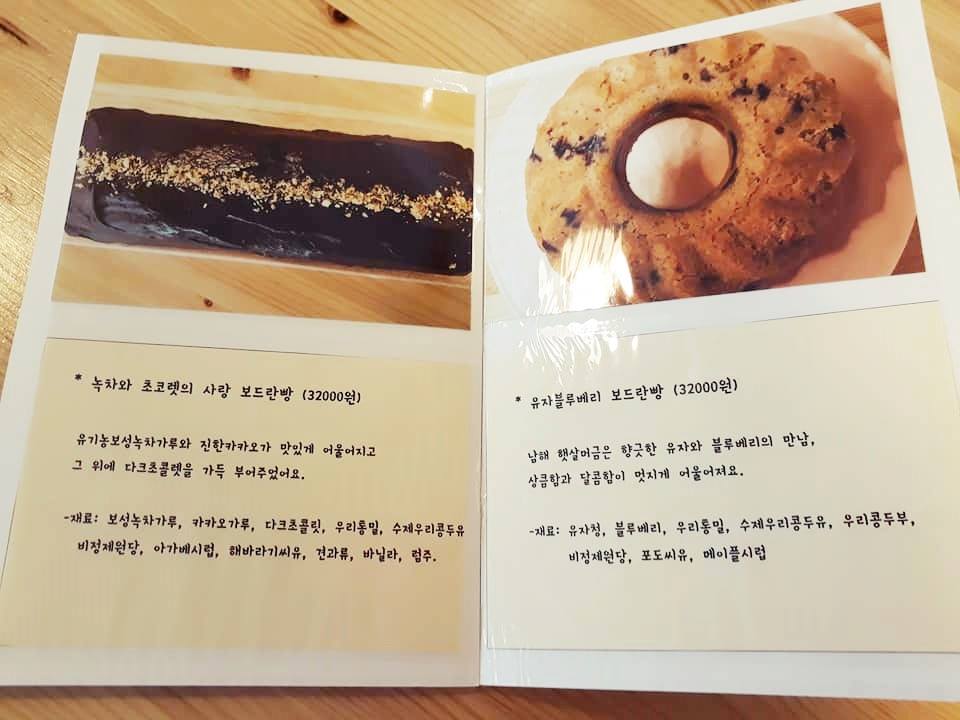 * 녹차와 초코렛의 사랑 보드란빵 (32000원)
유기농보성녹차가루와 진한카카오가 맛있게 어울어지고
그 위에 다크초콜렛을 가득 부어주었어요.
-재료: 보성녹차가루, 카카오가루, 다크초콜릿, 우리통밀, 수제우리콩두유
비정제원당, 아가베시럽, 해바라기씨유, 견과류, 바닐라, 럼주.
* 유자블루베리 보드란빵 (32000원)
남해 햇살머금은 향긋한 유자와 블루베리의 만남,
상큼함과 달콤함이 멋지게 어울어져요.
-재료: 유자청, 블루베리, 우리통밀, 수제우리콩두유, 우리콩두부,
비정제원당, 포도씨유, 메이플시럽